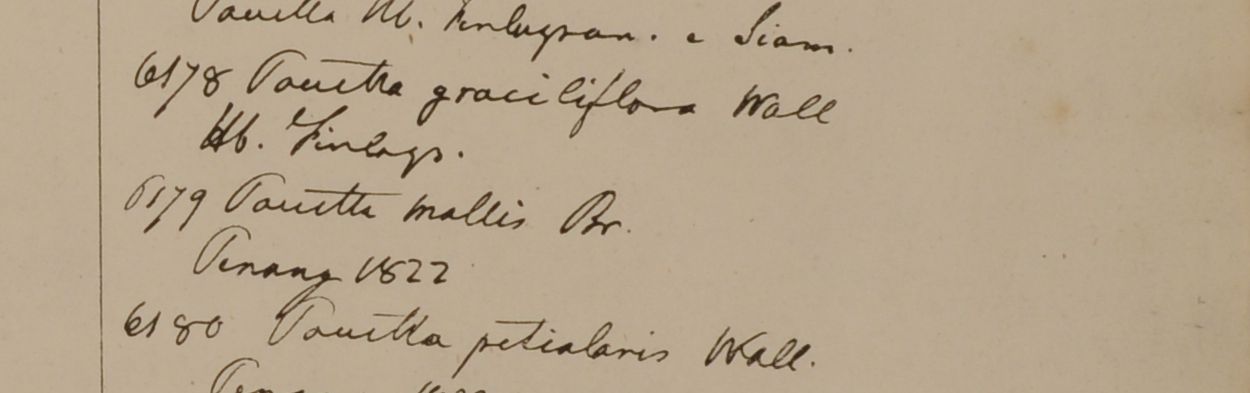 Pavetta Hb. Finlayson. e Siam.
6178 Pavetta graciliflora Wall
Hb. Finlays.
6179 Pavetta mollis Br.
Penang 1822
6180 Pavetta petiolaris Wall.